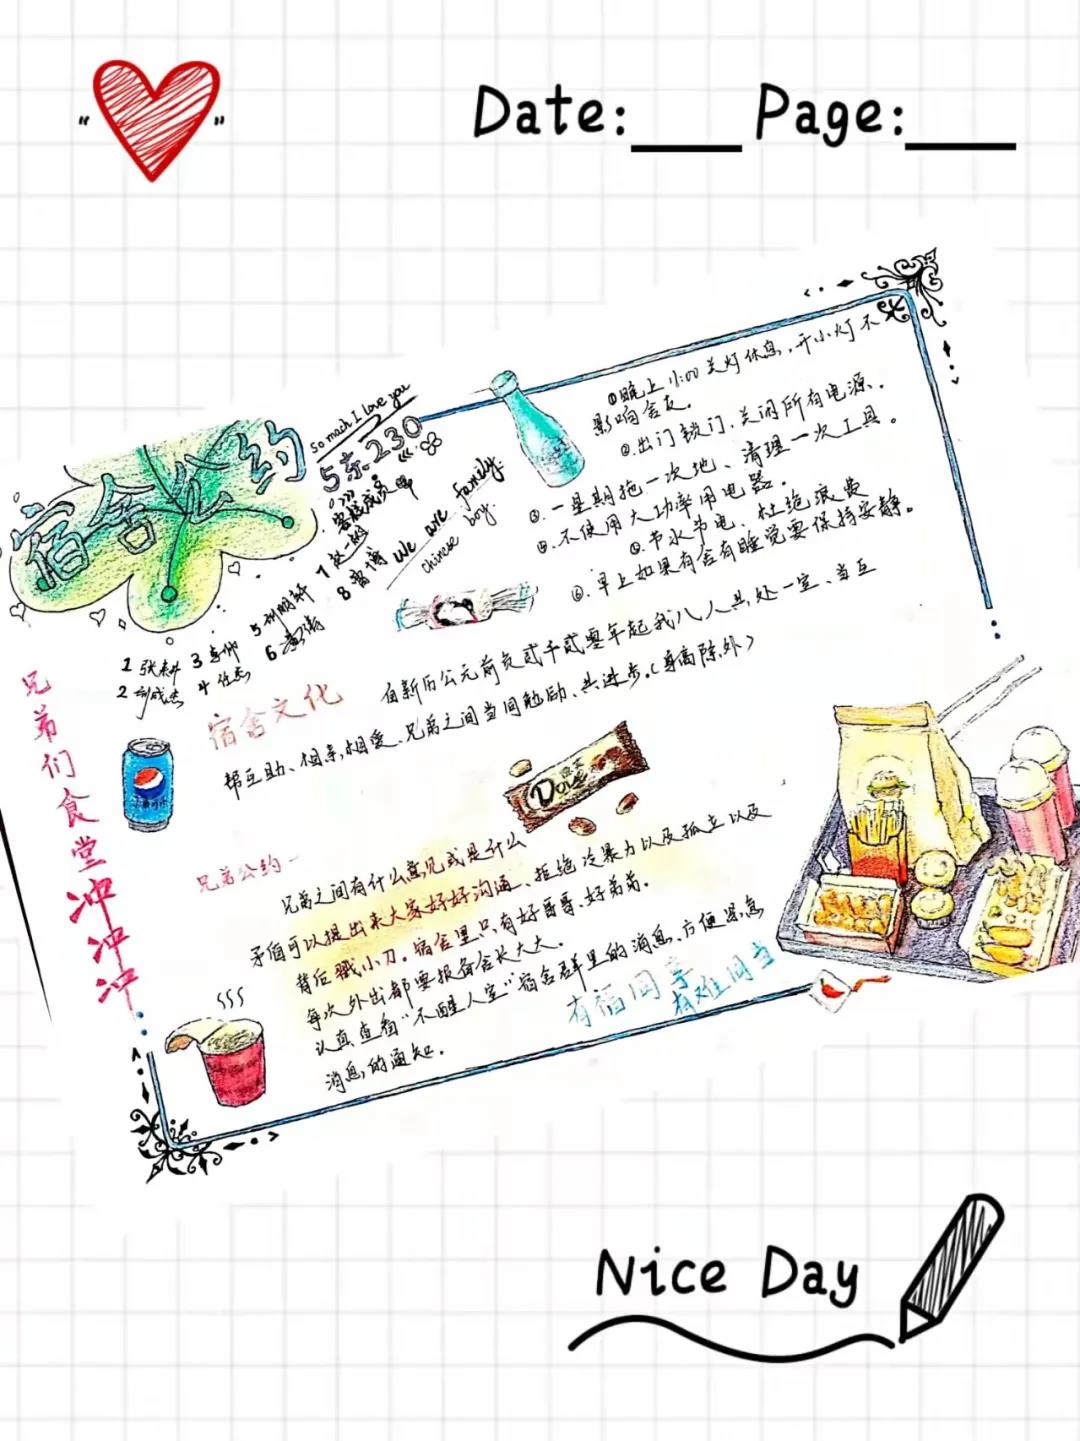 Date: Page:
宿舍公约
So mach I love you
5东-230
We are family.
chinese boy.
1 张
2 刘成杰
3
4 任杰
5 刘明轩
6
7 赵一
8
①晚上11:00关灯休息,开小灯不
影响舍友。
②.出门锁门、关闭所有电源、
③.一星期拖一次地、清理一次工具。
④.不使用大功率用电器。
⑤.节水节电、杜绝浪费
⑥.早上如果有舍有睡觉要保持安静。
兄弟们食堂冲冲冲
宿舍文化
自新历公元前负贰千贰零年起我八人共处一室、当互
帮互助、相亲,相爱、兄弟之间当同勉励、共进步。(身高除外)
Dove
兄弟公约一
兄弟之间有什么意见或是什么
矛盾可以提出来大家好好沟通、拒绝冷暴力以及孤立以及
背后戳小刀。宿舍里只有好哥哥、好弟弟。
每次外出都要报备舍长大大。
认真查看“不醒人室”宿舍群里的消息、方便
消息,的通知。
有福同享
有难同当
Nice Day